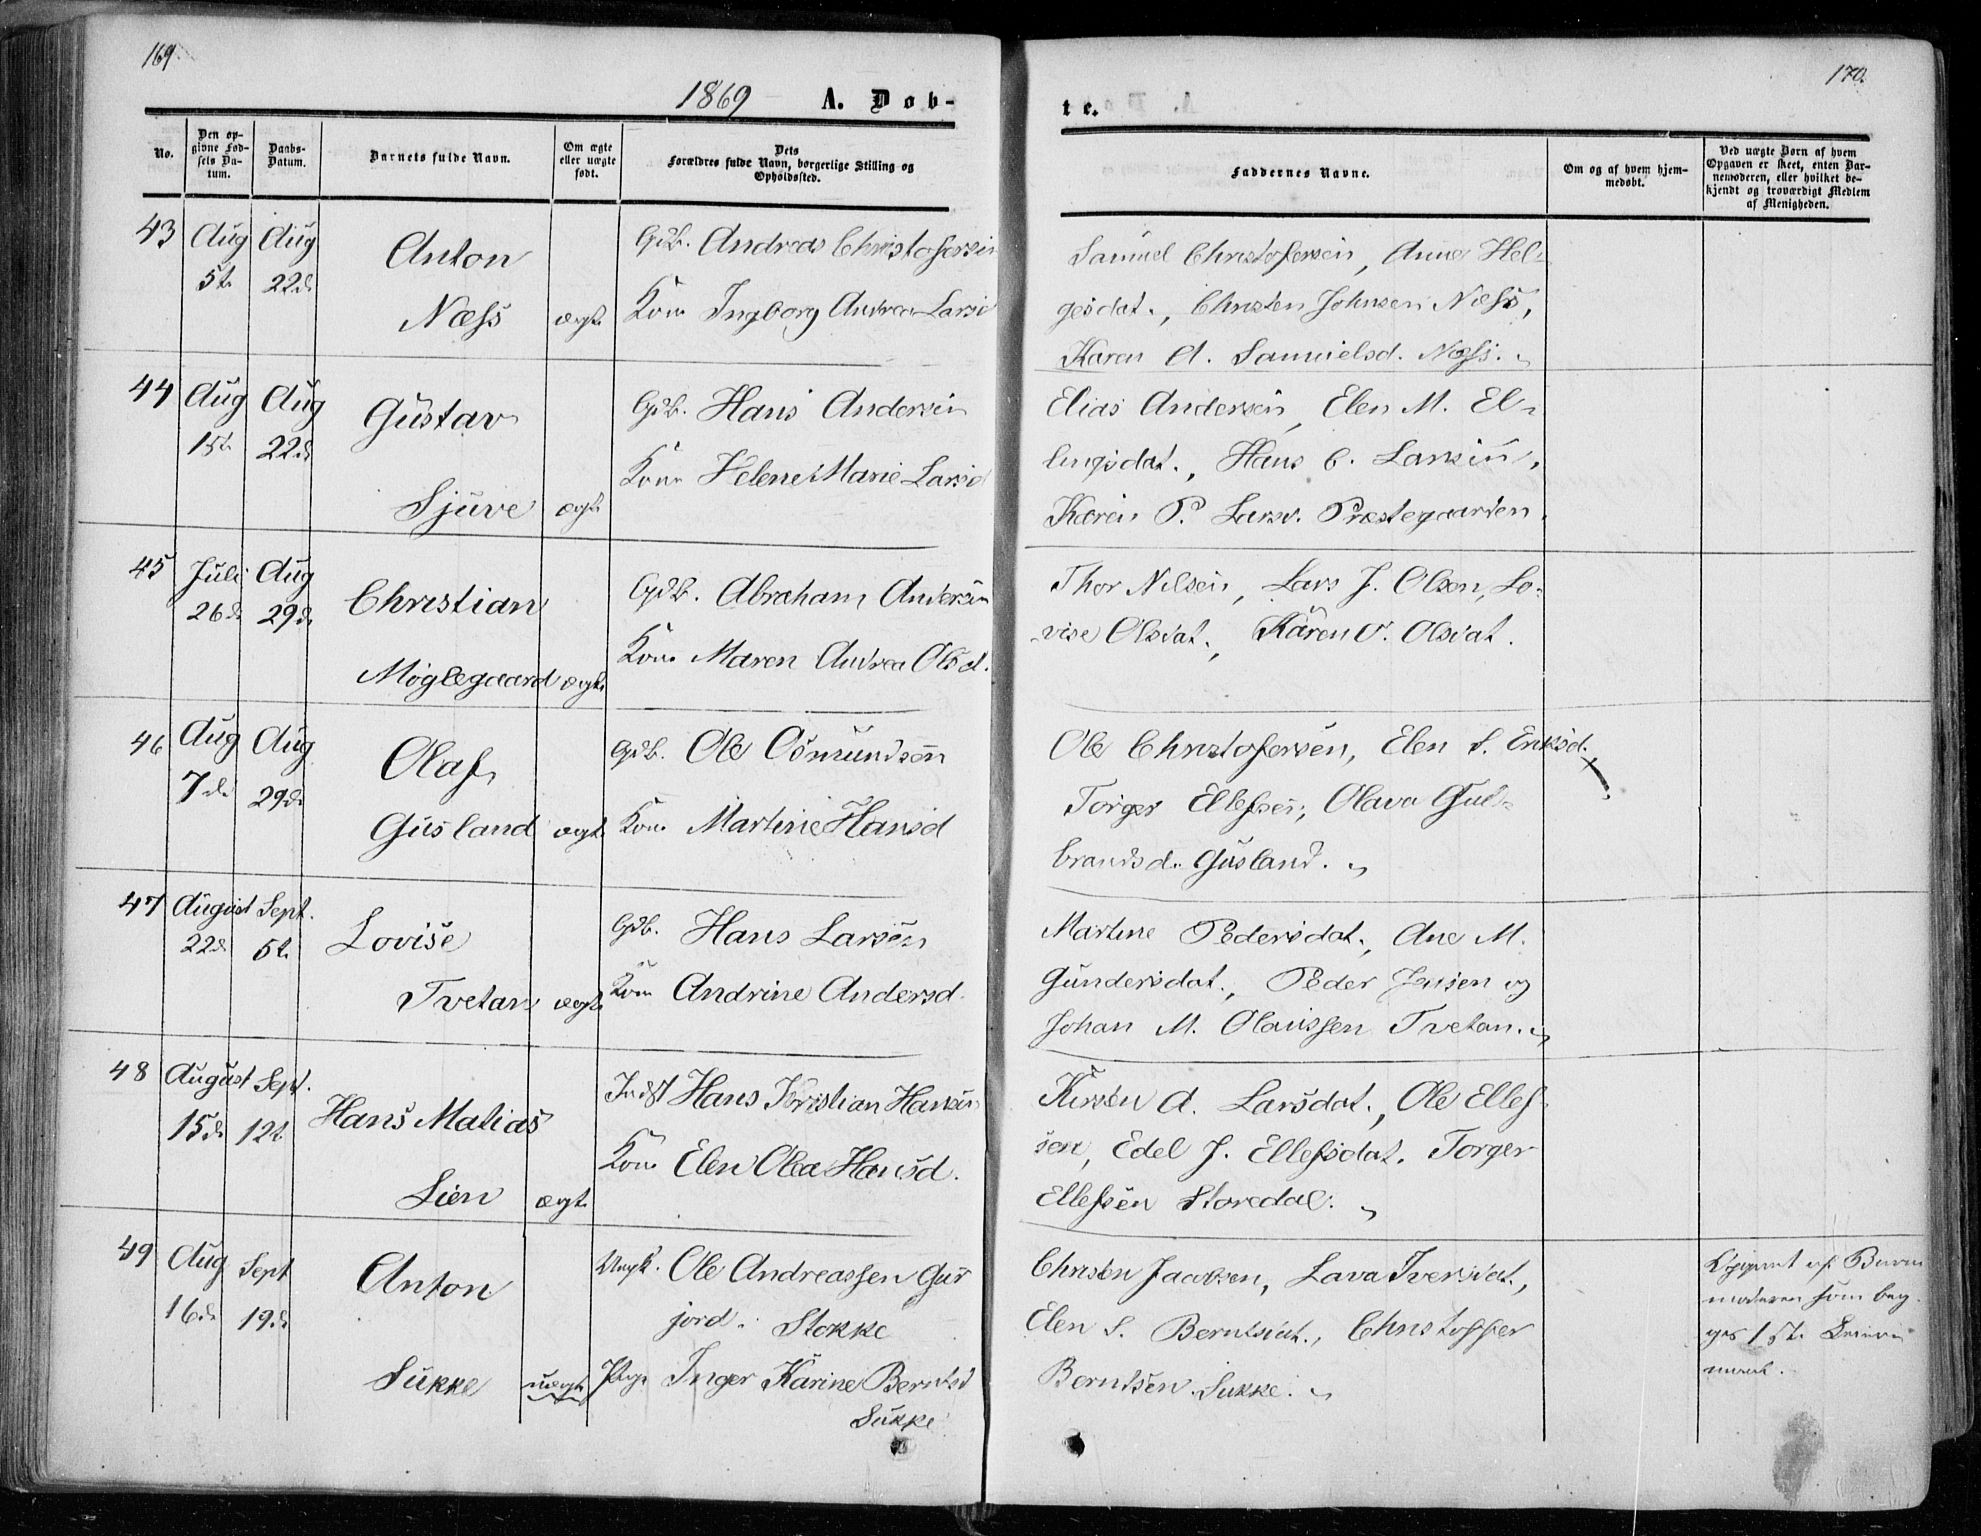 169.
170.
1869 A. Døb-
te.
No.
Den op-
givne Fød-
sels Da-
tum.
Daabs-
Datum.
Barnets fulde Navn.
Om ægte
eller uægte
født.
Dets
Forældres fulde Navn, borgerlige Stilling og
Opholdssted.
Faddernes Navne.
Om og af hvem hjem-
medøbt.
Ved uægte Børn af hvem
Opgaven er skeet, enten Bar-
nemoderen, eller hvilket be-
kjendt og troværdigt Medlem
af Menigheden.
43 Aug Aug
5t. 22d.
Anton
Næss ægt.
Gdb. Andreas Christofersen
Kone Ingborg Andrea Larsd
Samuel Christofersen, Anne Hel-
gesdat., Christen Johnsen Næss,
Karen A. Samuelsd. Næss.
44 Aug Aug
15t. 22d.
Gustav
Sjuve ægt.
Gdb. Hans Andersen
Kone Helene Marie Larsd
Elias Andersen, Elen M. El-
lingsdat., Hans C. Larsen,
Karen P. Larsd. Præstegaarden.
45 Juli Aug
26d. 29d.
Christian
Møglegaard ægt.
Gdb. Abraham Andersen
Kone Maren Andrea Olsd.
Thor Nilsen, Lars J. Olsen, Lo-
vise Olsdat., Karen O. Olsdat.
46 Aug Aug
7d. 29d.
Olaf
Gusland ægt.
Gdb. Ole Osmundsen
Kone Martine Hansd
Ole Christofersen, Elen S. Eriksd.
Torger Ellefsen, Olava Gul-
brandsd. Gusland.
47 August Sept.
22d. 5t.
Lovise
Tvetan ægt.
Gdb. Hans Larsen
Kone Andrine Andersd.
Martine Pedersdat., Ane M.
Gundersdat., Peder Jensen og
Johan M. Olaussen Tvetan.
48 August Sept.
15d. 12t.
Hans Matias
Lien ægt.
Indst Hans Kristian Hansen
Kone Elen Olea Hansd.
Kirsten A. Larsdat., Ole Ellef-
sen, Edel J. Ellefsdat. Torger
Ellefsen Storedal.
49 Aug Sept
16d. 19d.
Anton
Sukke uægt.
Ungk. Ole Andreassen Gur
jord. Stokke
Pige Inger Karine Berntsd
Sukke
Christen Jacobsen, Lava Iversdat.,
Elen S. Berntsdat., Christoffer
Berntsen Sukke.
Opgivet af Barne
moderen som bey-
ges 1ste Leier
maal.